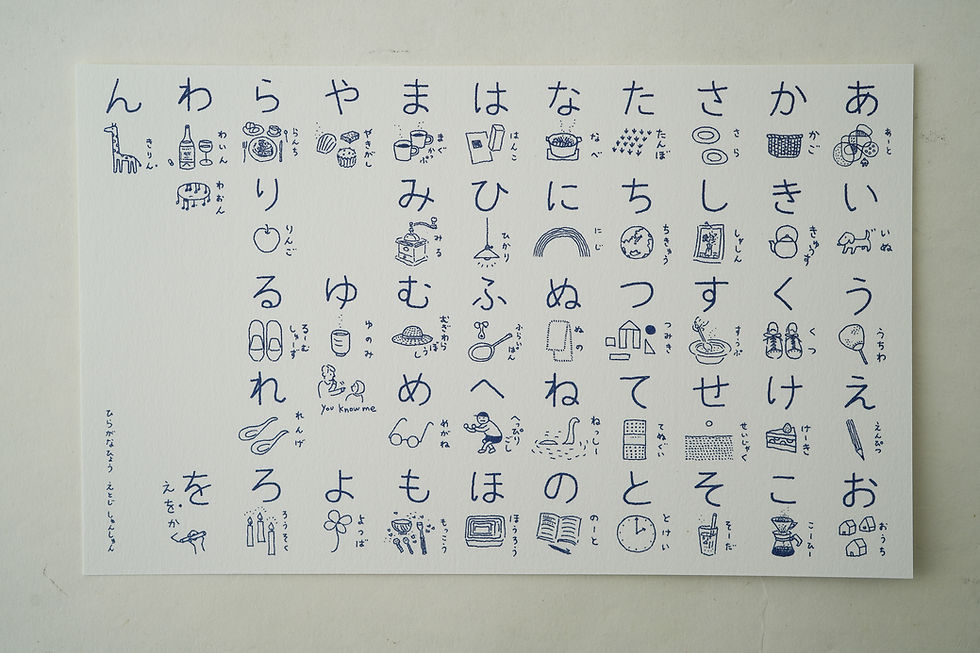 あ
あーと
い
いぬ
う
うちわ
え
えんぴつ
お
おうち
か
かご
き
きゅうす
く
くつ
け
けーき
こ
こーひー
さ
さら
し
しゃしん
す
すうぷ
せ
せいじゃく
そ
そーだ
た
たんぼ
ち
ちきゅう
つ
つみき
て
てぬぐい
と
とけい
な
なべ
に
にじ
ぬ
ぬの
ね
ねっしー
の
のーと
は
はんこ
ひ
ひかり
ふ
ふらいぱん
へ
へっぴり
ごし
ほ
ほうろう
ま
まぐ
かっぷ
み
みる
む
むぎわら
ぼうし
め
めがね
も
もっこう
や
やきがし
ゆ
ゆのみ
you know me
よ
よつば
ら
らんち
り
りんご
る
るーむ
しゅーず
れ
れんげ
ろ
ろうそく
わ
わいん
わおん
を
えをかく
ん
きりん
ひらがなひょう えとじ しゅんしゅん